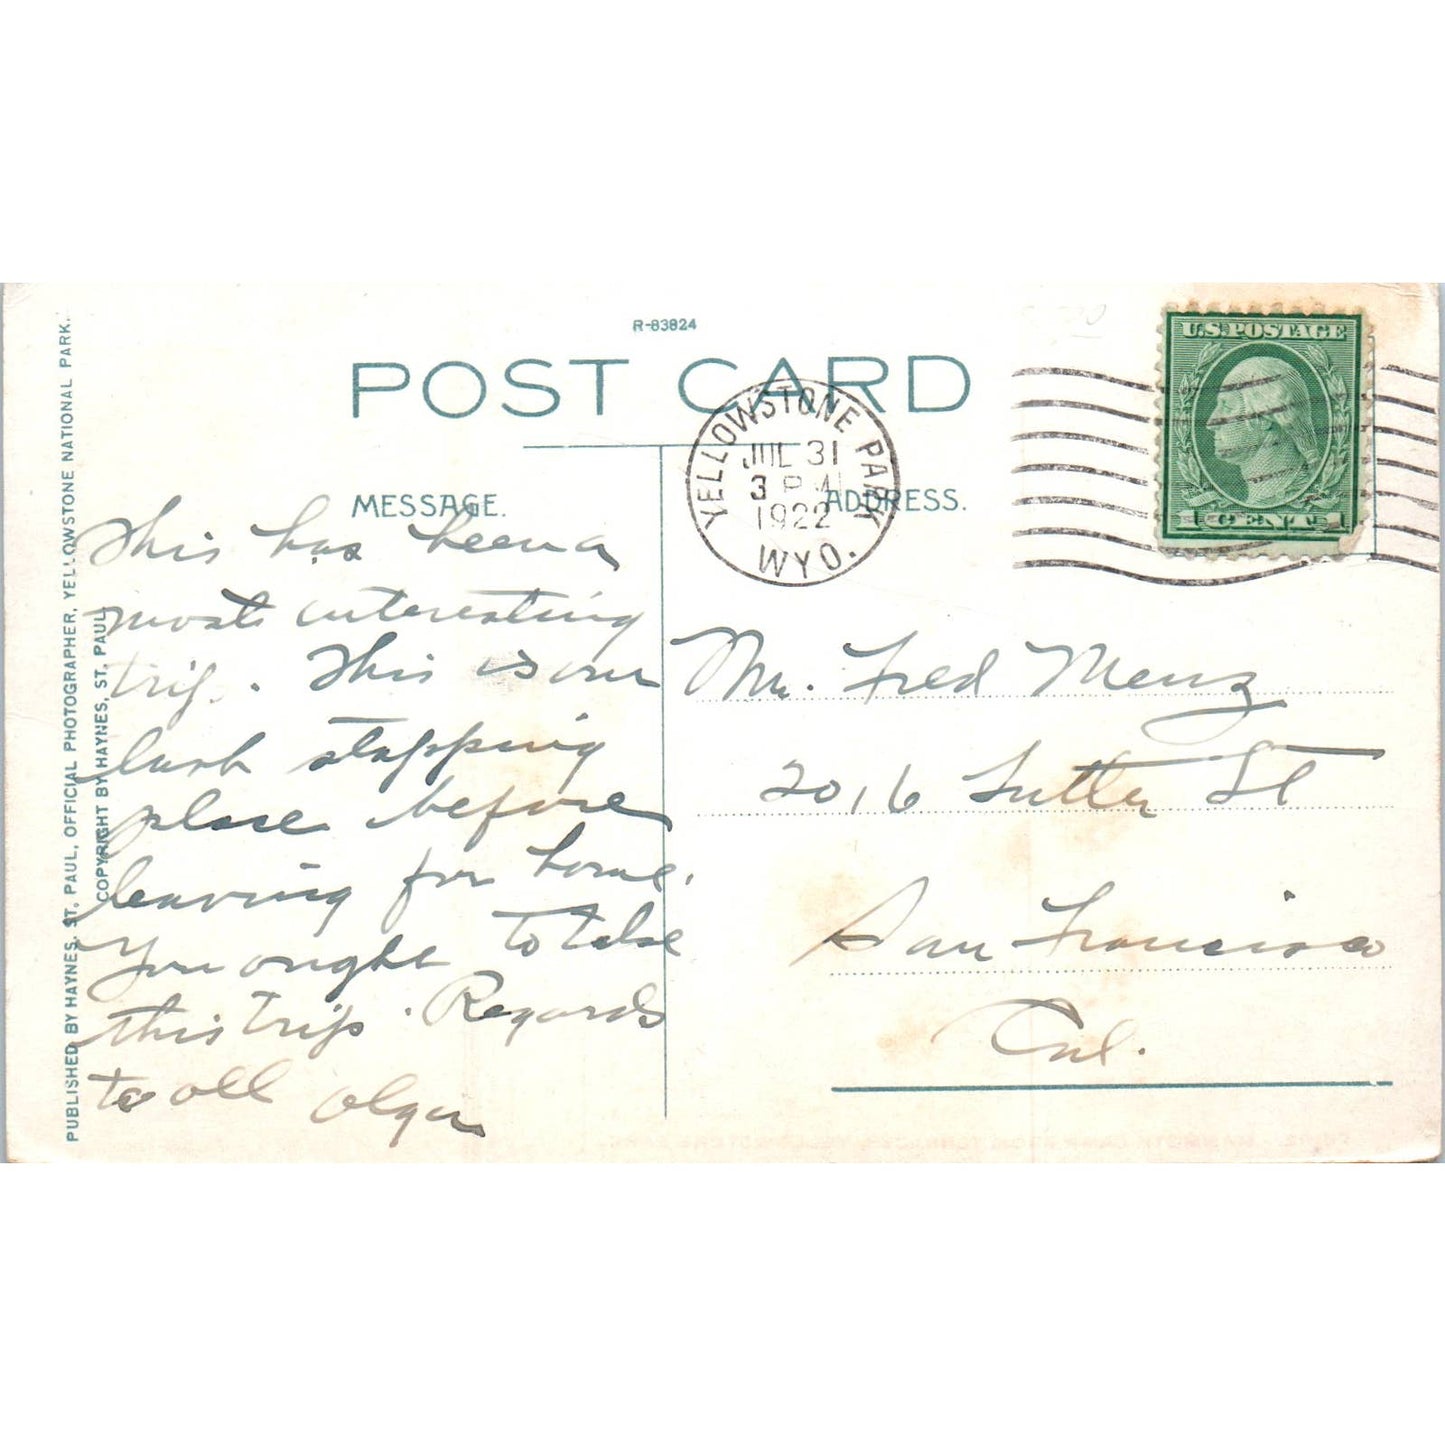 R-83824
POST CARD
MESSAGE.
ADDRESS.
U.S. POSTAGE
1 CENT 1
YELLOWSTONE PARK
JUL 31
3 PM
1922
WYO.
PUBLISHED BY HAYNES, ST. PAUL, OFFICIAL PHOTOGRAPHER, YELLOWSTONE NATIONAL PARK.
COPYRIGHT BY HAYNES, ST. PAUL
This has been a
most interesting
trip. This is our
last stopping
place before
leaving for home.
You ought to take
this trip. Regards
to all Olga
Mr. Fred Menz
2016 Sutter St
San Francisco
Cal.